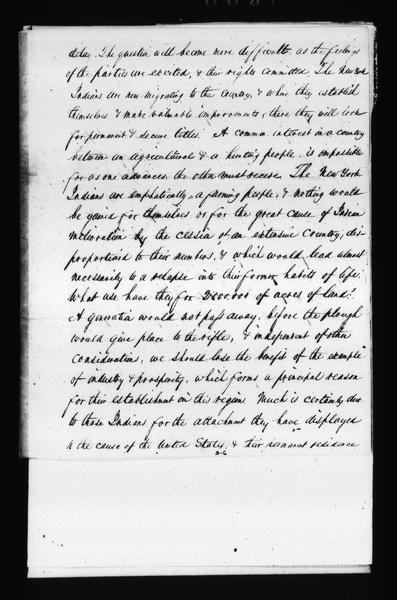 delay. The question will become more difficult as the feelings
of the parties are excited, & their rights committed. The New York
Indians are now migrating to the Country, & where they establish
themselves & make valuable improvements, there they will look
for permanent & secure titles. A common interest in a country
between an agricultural & a hunting people, is impossible
for as one advances, the other must recede. The New York
Indians are emphatically a farming people, & nothing would
be gained for themselves or for the great cause of Indian
melioration by the cession of an extensive Country, dis-
proportioned to their numbers, & which would lead almost
necessarily to a relapse into their former habits of life.
What use have they for 2000000 of acres of land?
A generation would not pass away, before the plough
would give place to the rifle, & independent of other
Consideration, we should lose the benefit of the example
of industry & prosperity, which forms a principal reason
for their establishment in this region. Much is certainly due
to those Indians for the attachment they have displayed
to the cause of the United States, & their permanent residence